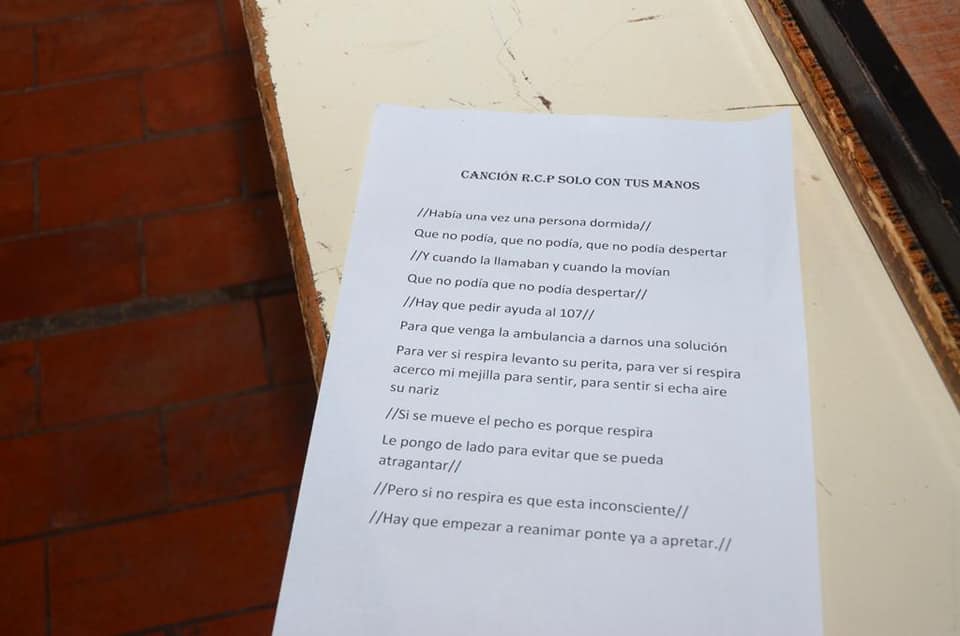 CANCIÓN R.C.P SOLO CON TUS MANOS
//Había una vez una persona dormida//
Que no podía, que no podía, que no podía despertar
//Y cuando la llamaban y cuando la movían
Que no podía que no podía despertar//
//Hay que pedir ayuda al 107//
Para que venga la ambulancia a darnos una solución
Para ver si respira levanto su perita, para ver si respira
acerco mi mejilla para sentir, para sentir si echa aire
su nariz
//Si se mueve el pecho es porque respira
Le pongo de lado para evitar que se pueda
atragantar//
//Pero si no respira es que esta inconsciente//
//Hay que empezar a reanimar ponte ya a apretar.//